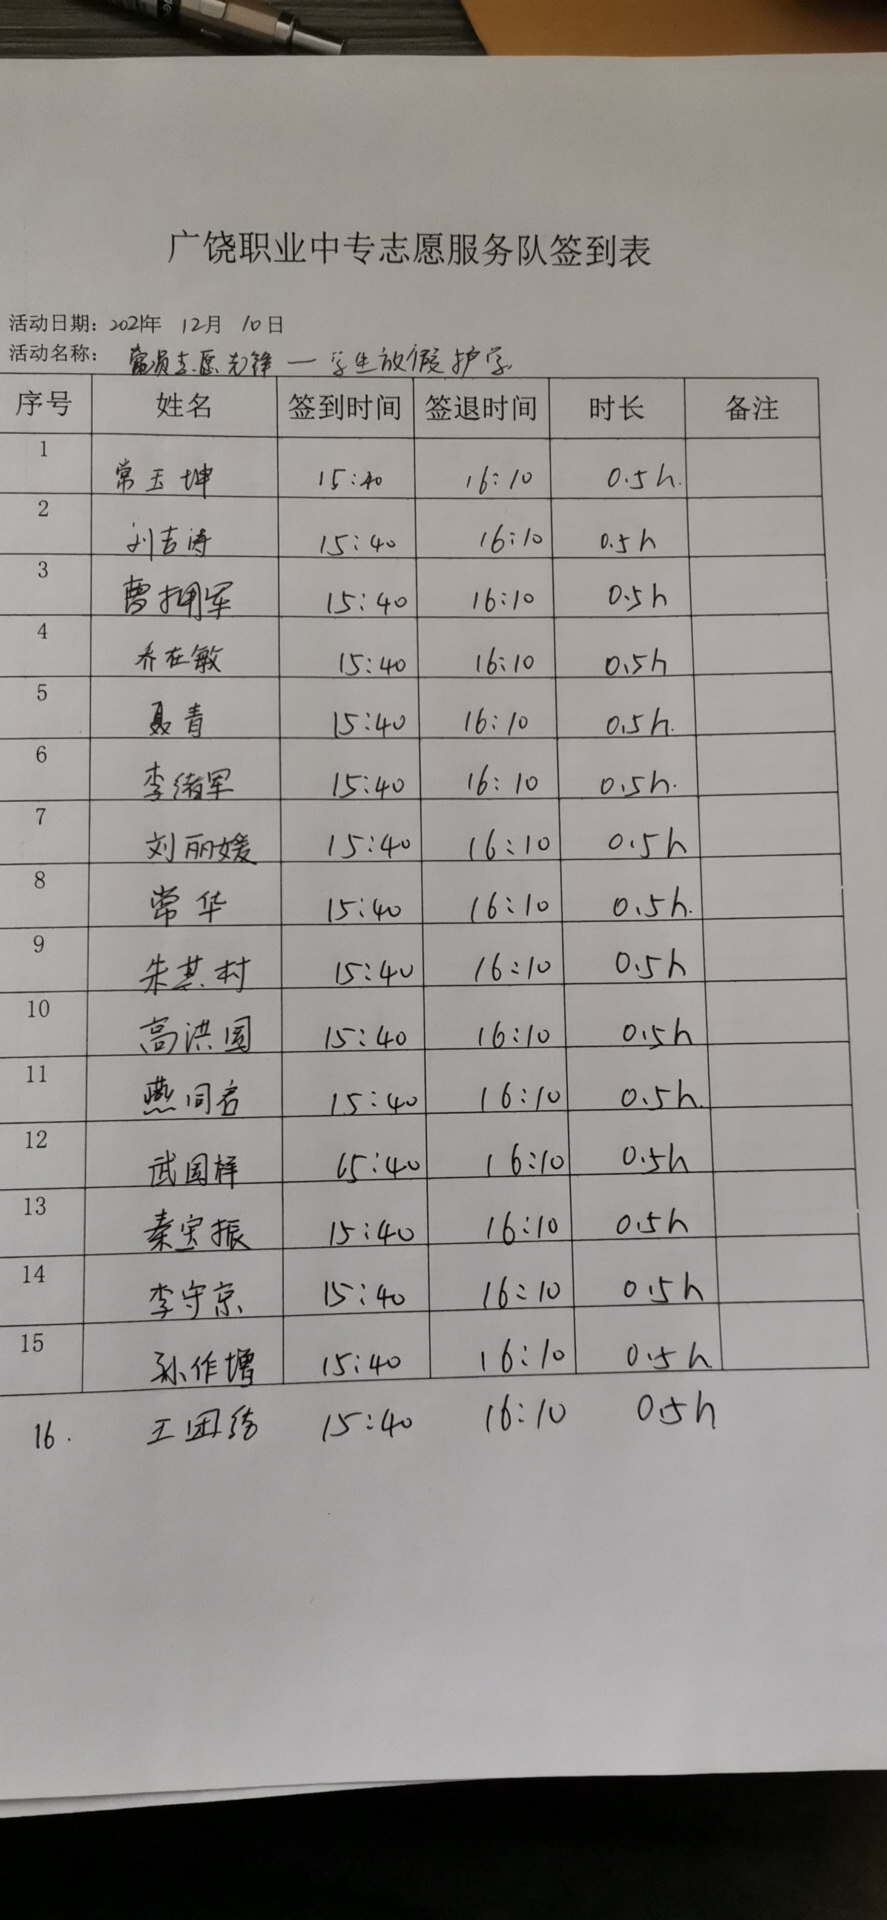 广饶职业中专志愿服务队签到表
活动日期：2021年 12月 10日
活动名称：党员志愿先锋—学生放假护学
序号 姓名 签到时间 签退时间 时长 备注
1 常玉坤 15:40 16:10 0.5h.
2 刘吉涛 15:40 16:10 0.5h
3 曹拥军 15:40 16:10 0.5h
4 乔在敏 15:40 16:10 0.5h
5 聂青 15:40 16:10 0.5h.
6 李绪军 15:40 16:10 0.5h.
7 刘丽媛 15:40 16:10 0.5h
8 常华 15:40 16:10 0.5h.
9 朱其村 15:40 16:10 0.5h
10 高洪国 15:40 16:10 0.5h
11 燕同君 15:40 16:10 0.5h.
12 武国梓 15:40 16:10 0.5h
13 秦宝振 15:40 16:10 0.5h
14 李守京 15:40 16:10 0.5h
15 孙作增 15:40 16:10 0.5h
16. 王团结 15:40 16:10 0.5h